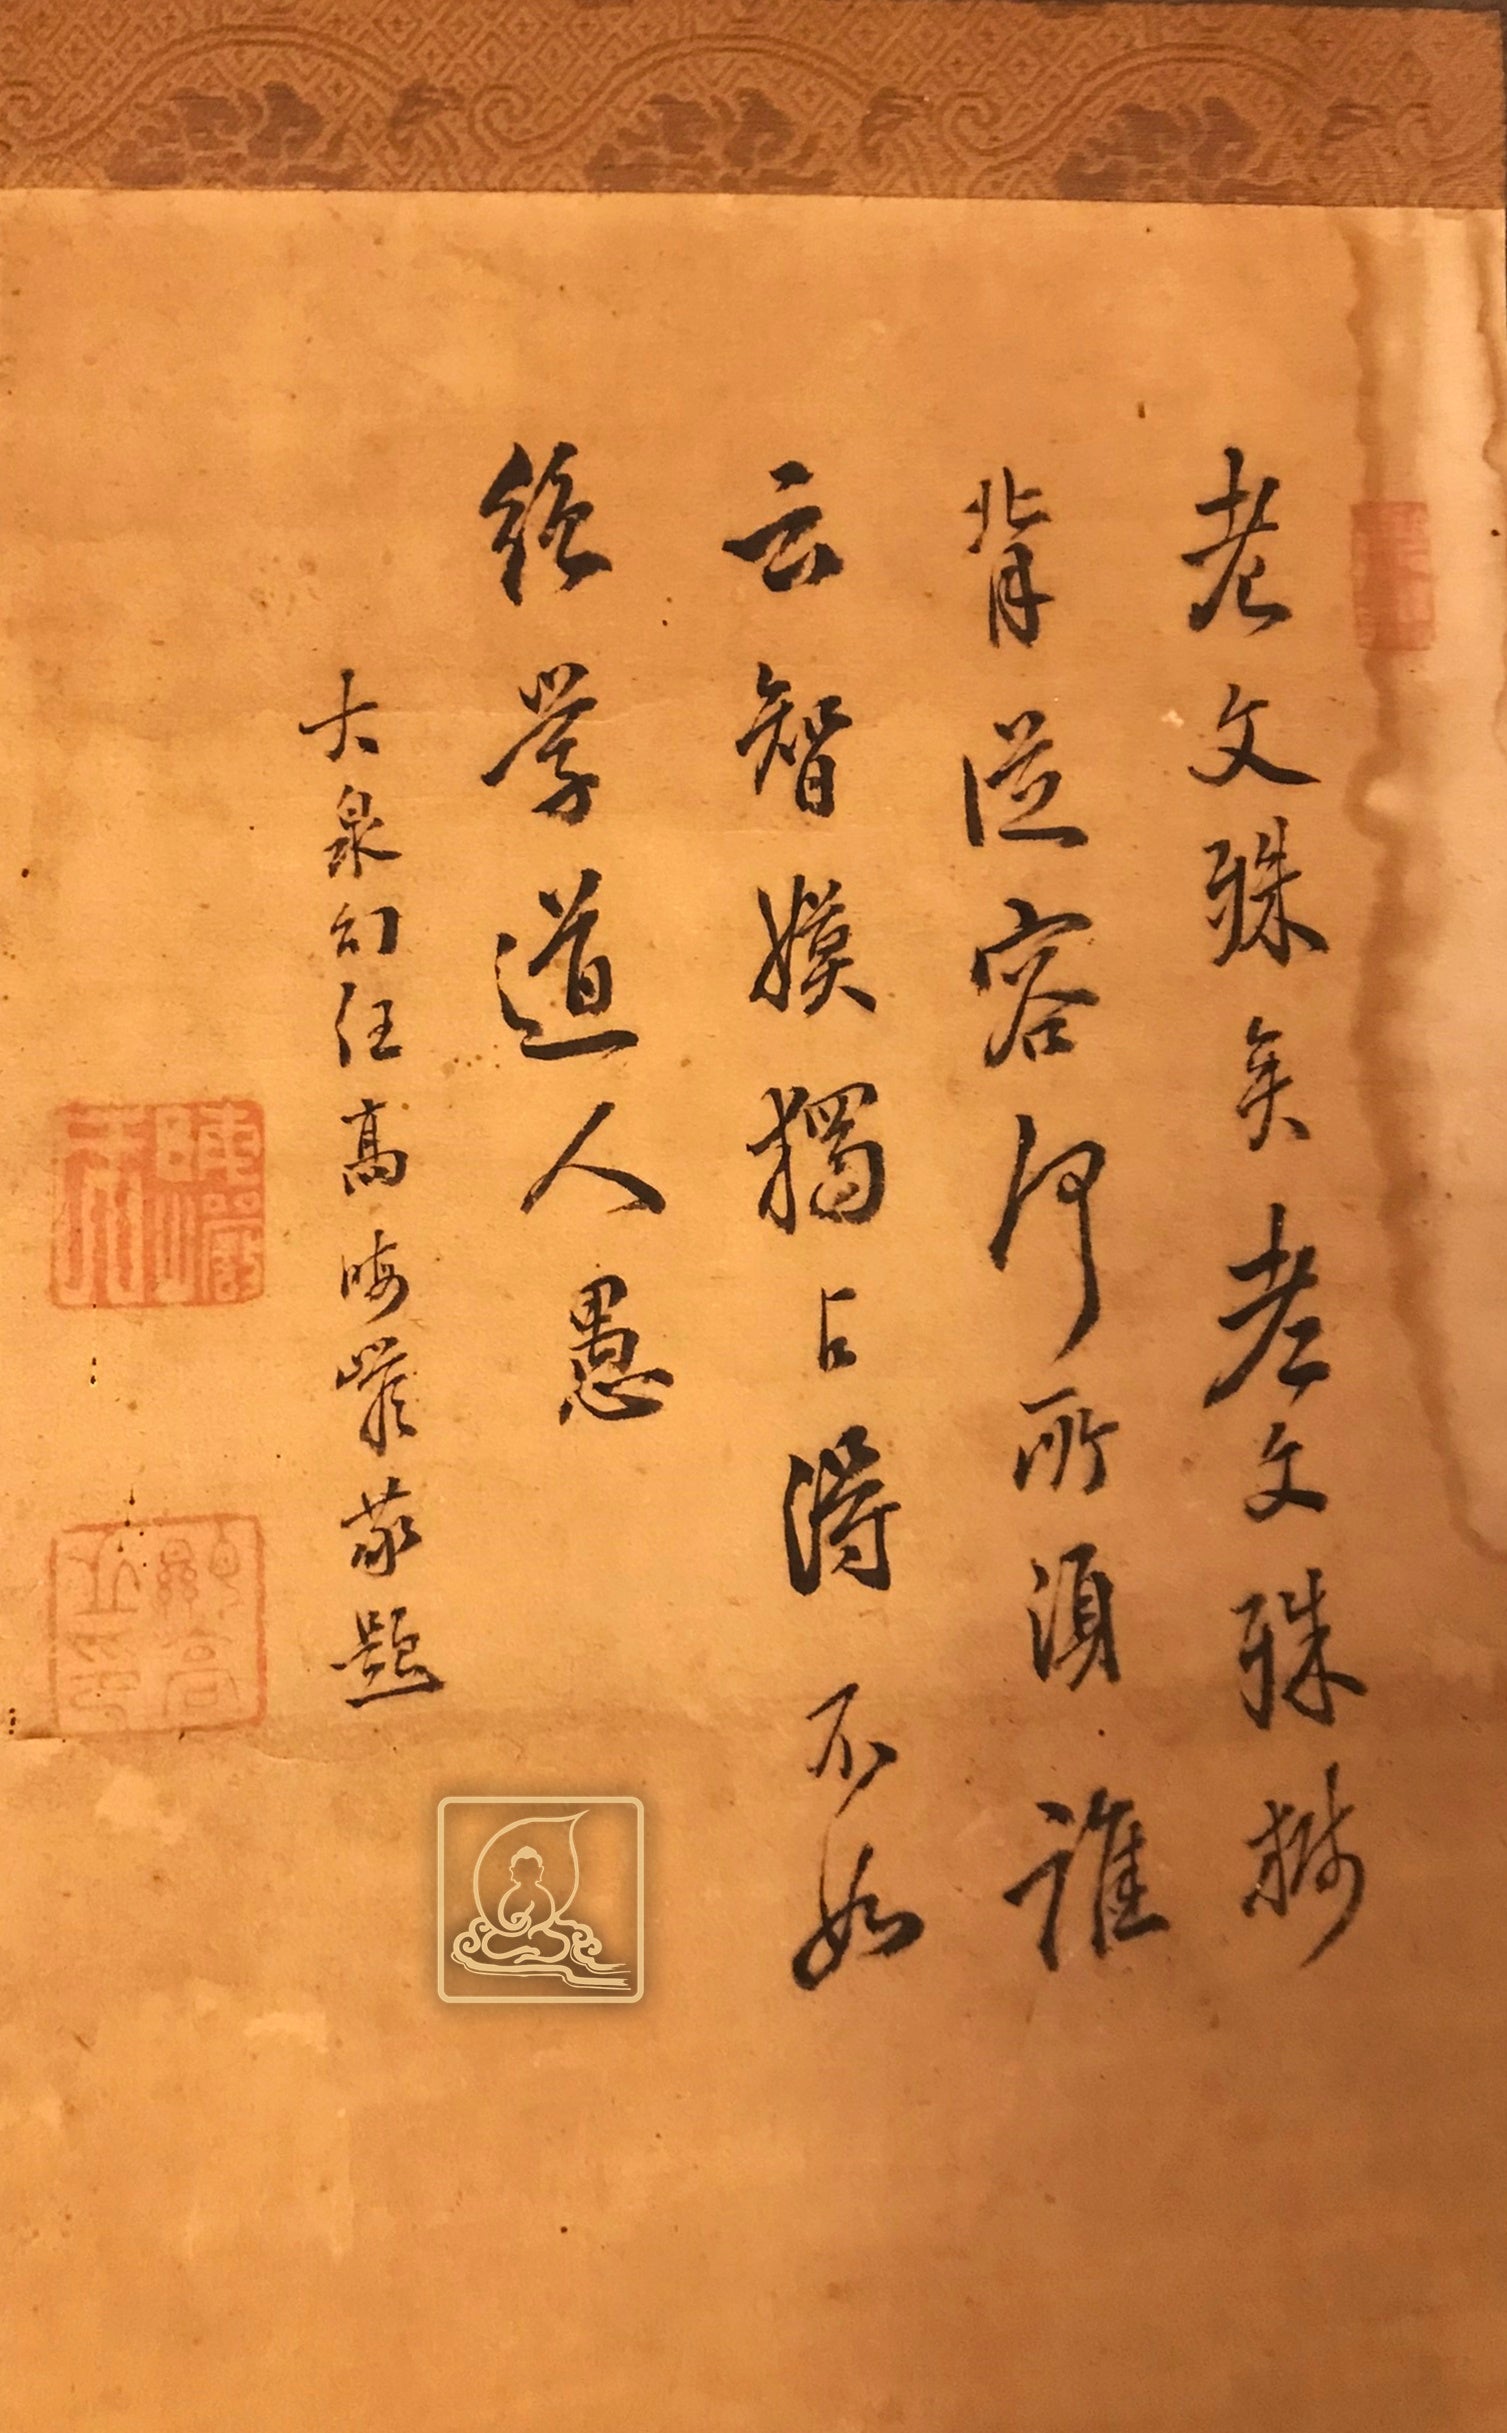 老文殊矣老文殊㨾
背從容何所須誰
云智嫫獨占得不如
絕學道人愚
大泉幻住高晦巖敬題